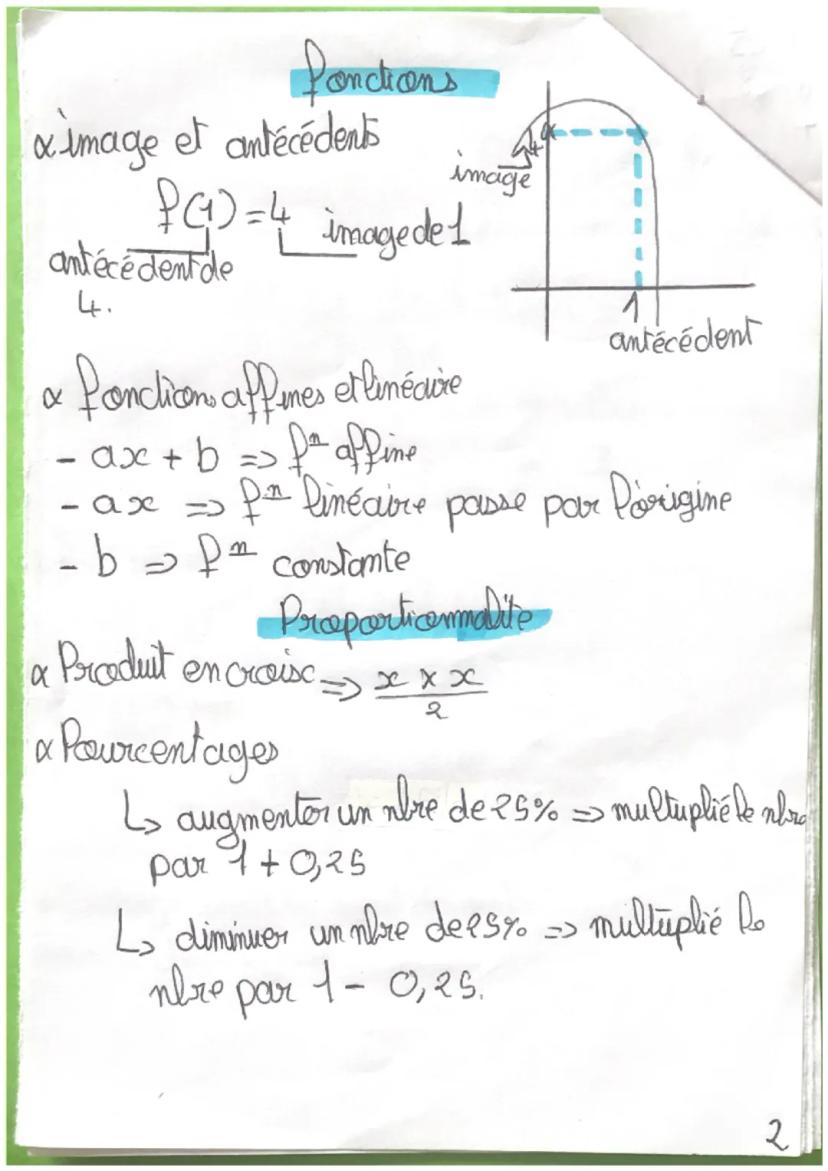 Fonctions
∝ image et antécédents
image
4
f(1) = 4
image de 1
antécédent de
4.
1
antécédent
∝ fonctions affines et linéaire
- ax + b => fn affine
- ax => fn linéaire passe par l'origine
- b => fn constante
Proportionnalité
∝ Produit en croisc => x × x / 2
∝ Pourcentages
↳ augmenter un nbre de 25% => multuplié le nbre
par 1 + 0,25
↳ diminuer un nbre de 25% => multiplié le
nbre par 1 - 0,25.
2